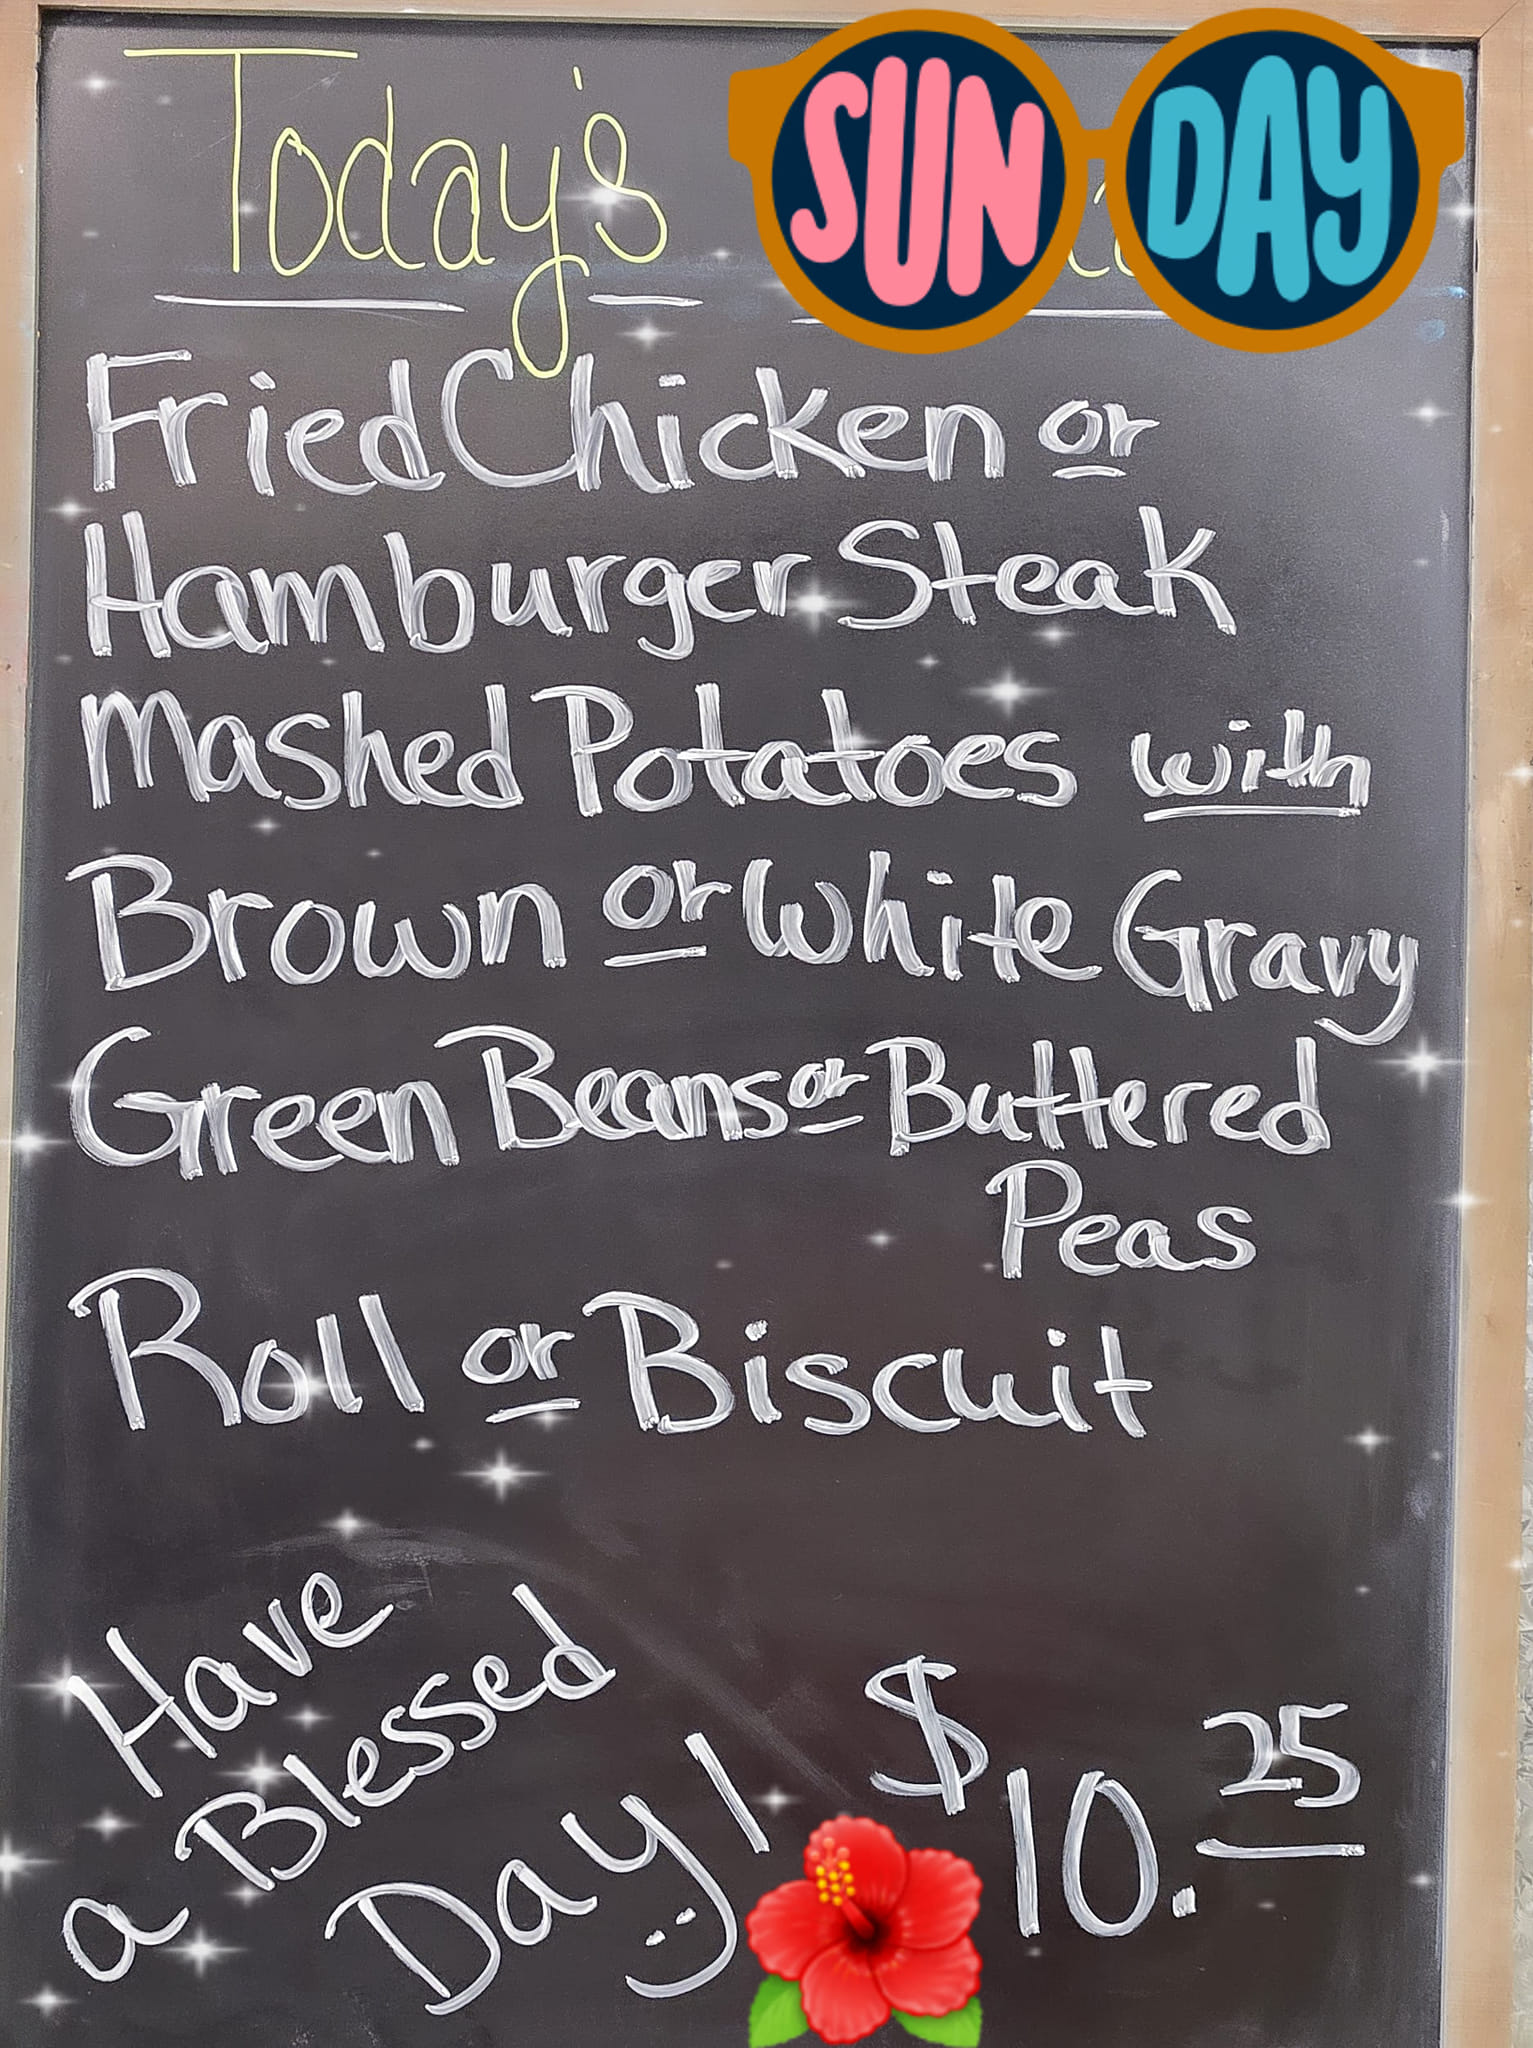 Today's
SUN DAY
Fried Chicken or
Hamburger Steak
Mashed Potatoes with
Brown or White Gravy
Green Beans or Buttered
Peas
Roll or Biscuit
Have
a Blessed
Day!
$10.25